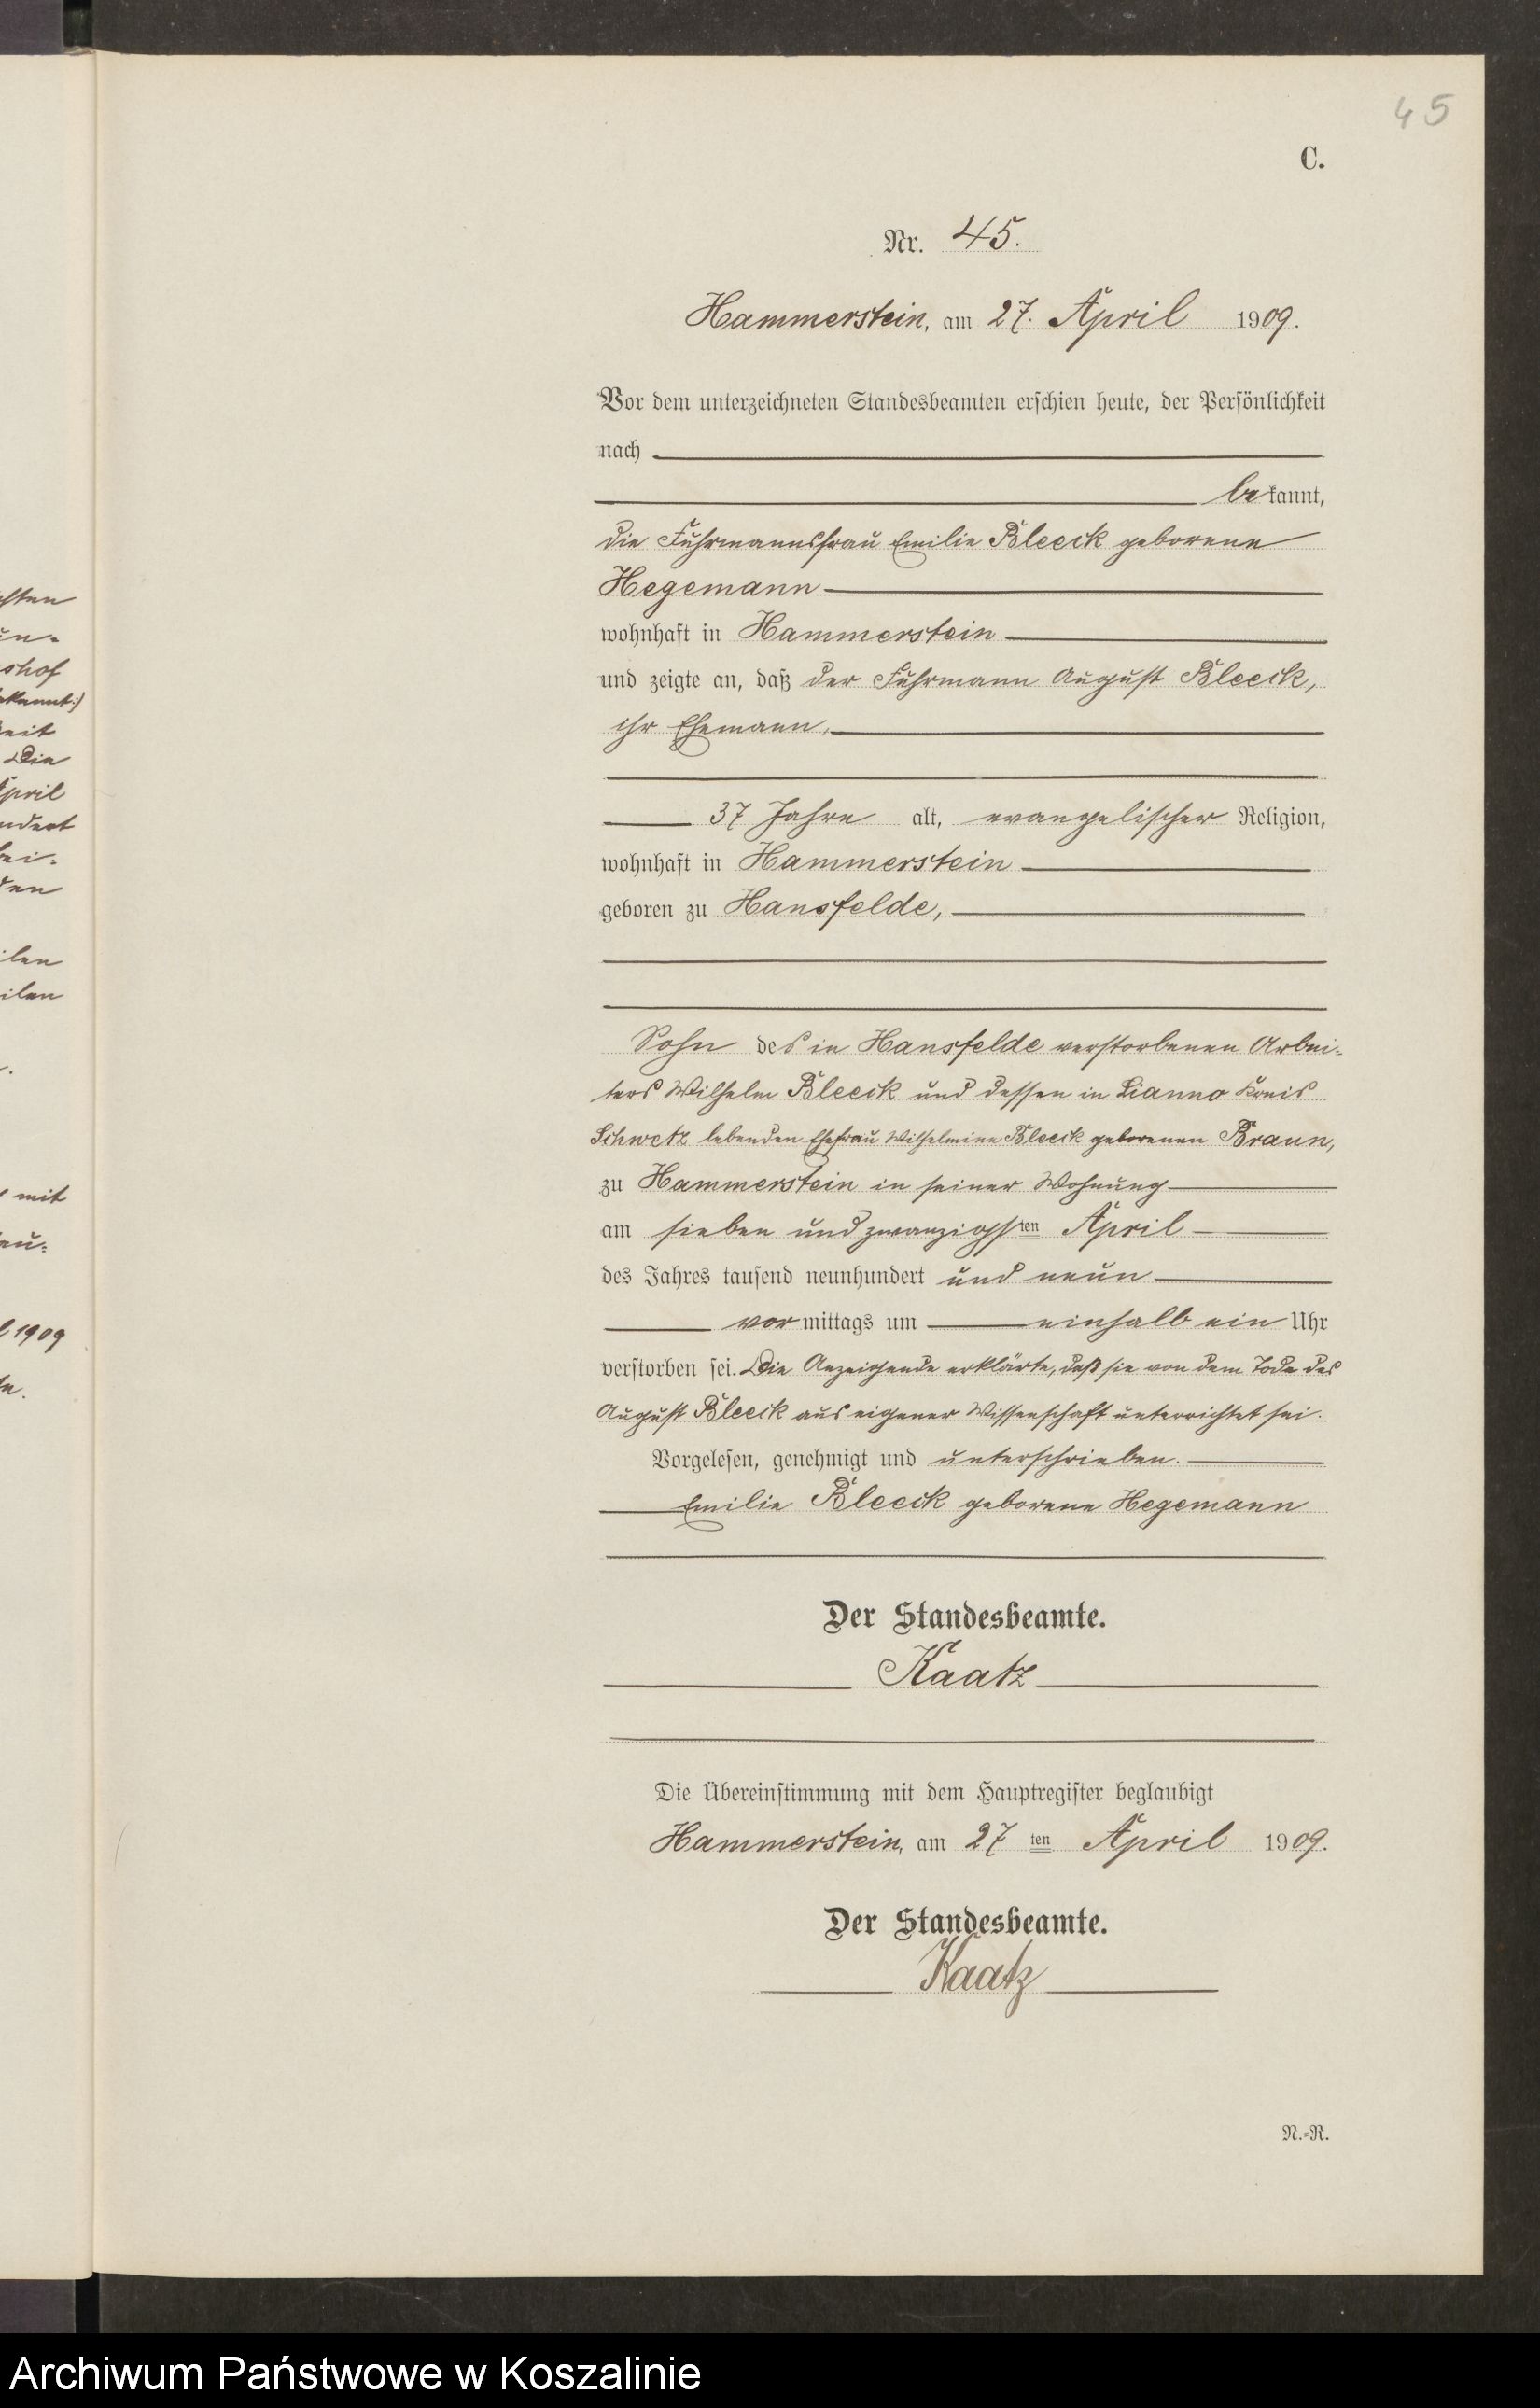 45
C.
Nr. 45.
Hammerstein, am 27. April 1909.
Vor dem unterzeichneten Standesbeamten erschien heute, der Persönlichkeit
nach
bekannt,
die Fuhrmannsfrau Emilie Bleeck geborene
Hegemann
wohnhaft in Hammerstein
und zeigte an, daß der Fuhrmann August Bleeck,
ihr Ehemann,
37 Jahre alt, evangelischer Religion,
wohnhaft in Hammerstein
geboren zu Hansfelde,
Sohn des in Hansfelde verstorbenen Arbei-
ters Wilhelm Bleeck und dessen in Lianno Kreis
Schwetz lebenden Ehefrau Wilhelmine Bleeck geborenen Braun,
zu Hammerstein in seiner Wohnung
am sieben und zwanzigsten April
des Jahres tausend neunhundert und neun
vormittags um einhalb ein Uhr
verstorben sei. Die Anzeigende erklärte, daß sie von dem Tode des
August Bleeck aus eigener Wissenschaft unterrichtet sei.
Vorgelesen, genehmigt und unterschrieben.
Emilie Bleeck geborene Hegemann
Der Standesbeamte.
Kaatz
Die Übereinstimmung mit dem Hauptregister beglaubigt
Hammerstein, am 27 ten April 1909.
Der Standesbeamte.
Kaatz
N.-R.
Archiwum Państwowe w Koszalinie